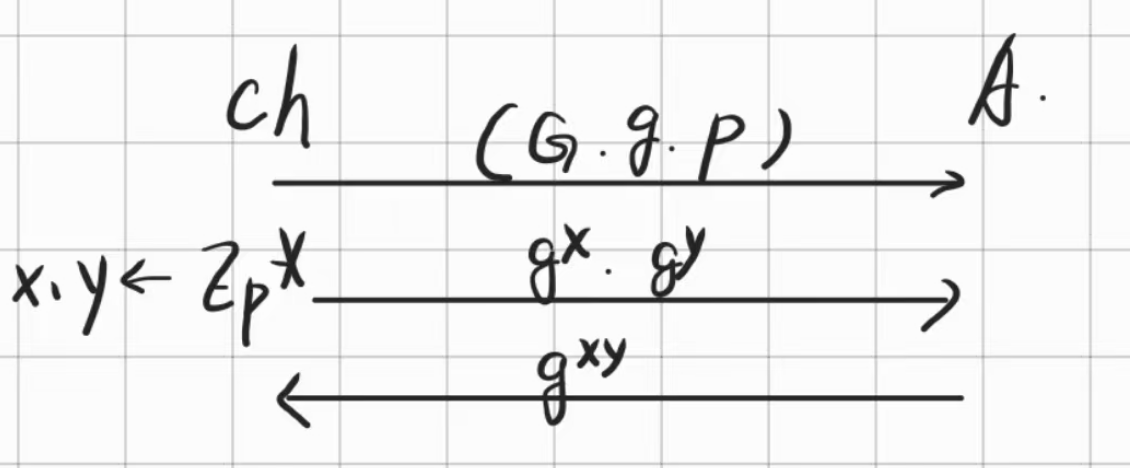 ch A.
(G.g.p)
x,y← Zp* gˣ. gʸ
gˣʸ